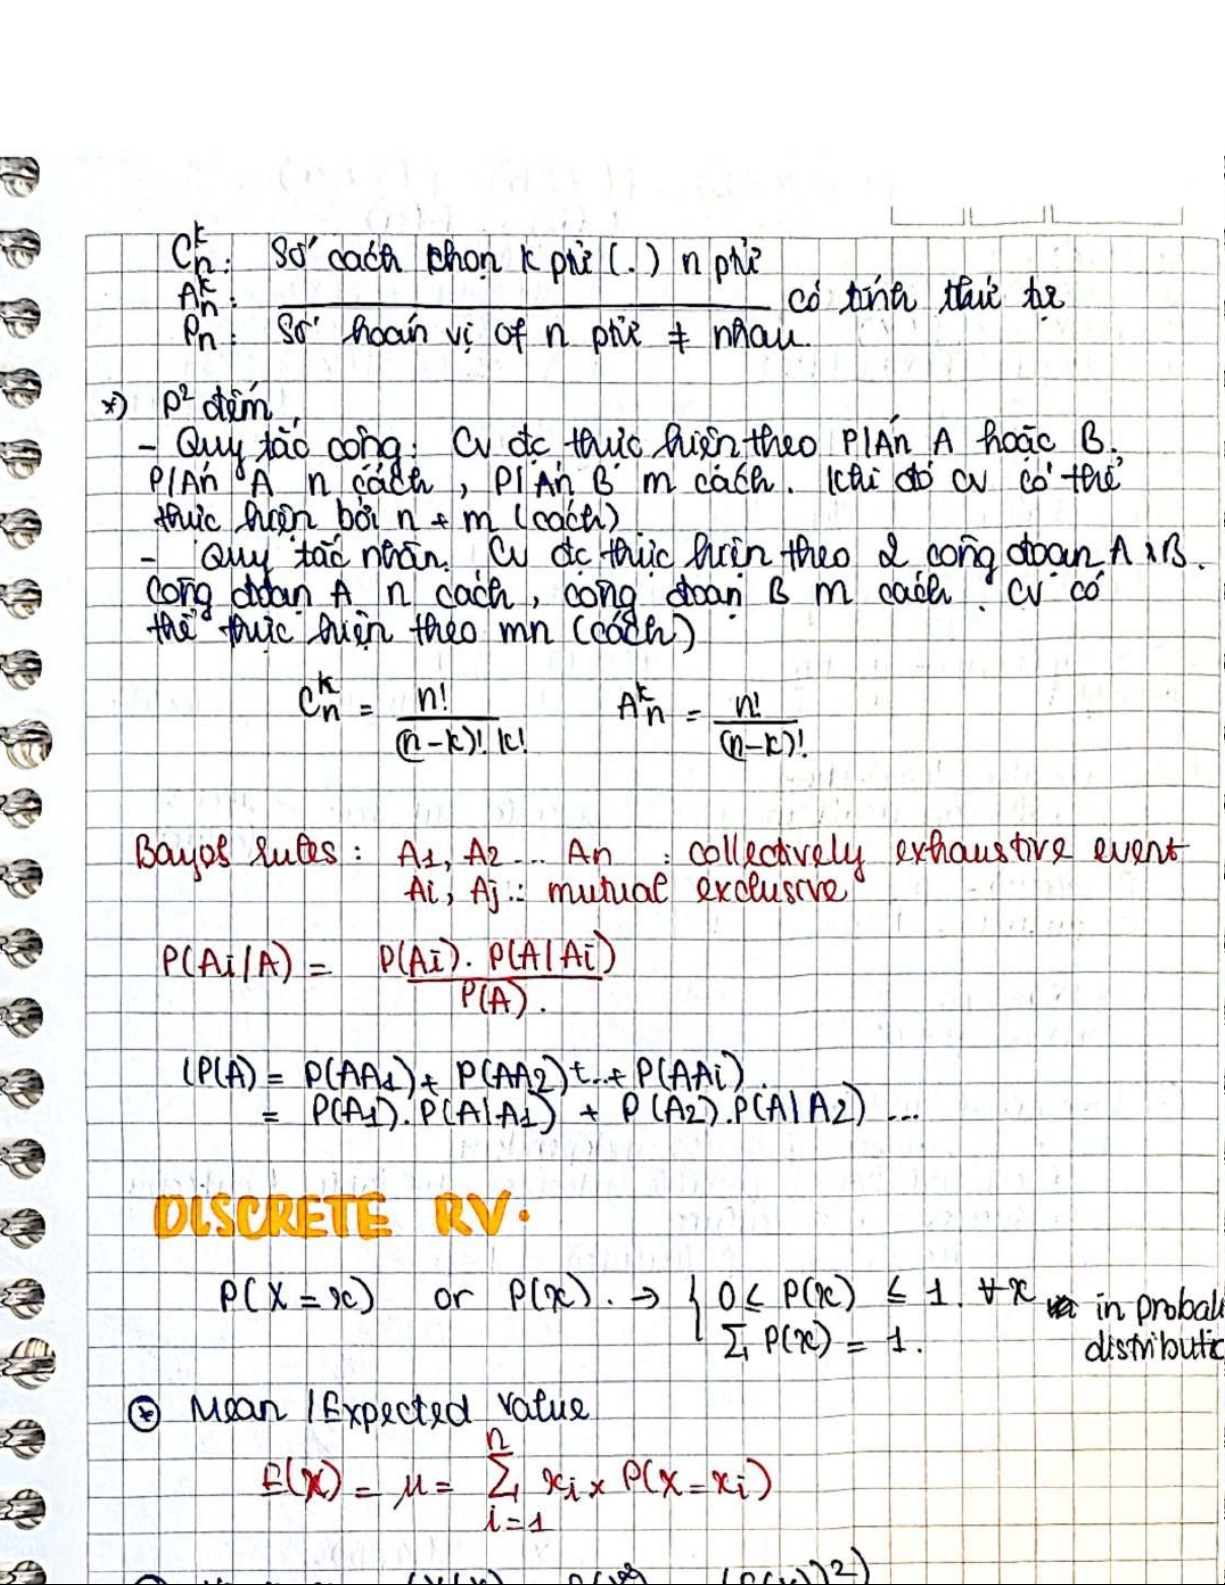 C_n^k : Số cách chọn k ptử (.) n ptử
A_n^k : ――――――――― có tính thứ tự
P_n : Số hoán vị of n ptử ≠ nhau.
*) P² đếm
- Quy tắc cộng: CV đc thực hiện theo P/Án A hoặc B.
P/Án A n cách, P/Án B m cách. Khi đó CV có thể
thực hiện bởi n + m (cách)
- Quy tắc nhân. CV đc thực hiện theo 2 công đoạn A & B.
Công đoạn A n cách, công đoạn B m cách. CV có
thể thực hiện theo mn (cách)
C_n^k = n! / (n-k)! k!   A_n^k = n! / (n-k)!
Bayes rules: A1, A2 ... An : collectively exhaustive event
Ai, Aj : mutual exclusive
P(Ai/A) = P(Ai). P(A|Ai) / P(A).
(P(A) = P(AA1) + P(AA2) + ... + P(AAi).
= P(A1). P(A|A1) + P(A2). P(A|A2) ...
DISCRETE RV.
P(X = x) or P(x). → { 0 ≤ P(x) ≤ 1. ∀x in probab
∑ P(x) = 1. distributi
⊛ Mean / Expected value
E(X) = μ = ∑_{i=1}^{n} xi × P(X = xi)